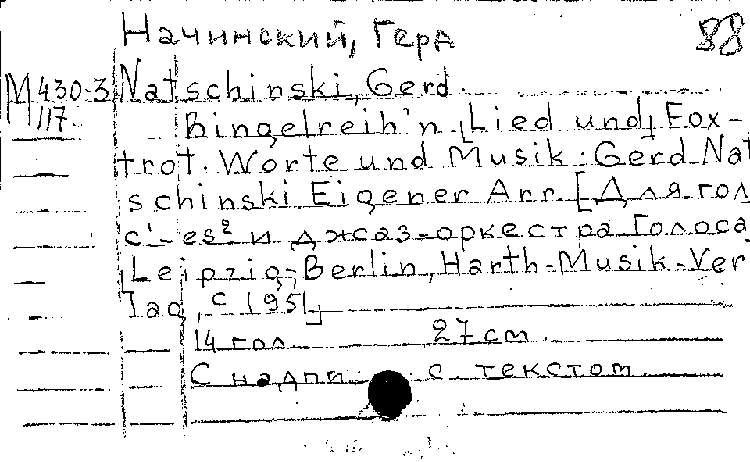 Начинский, Герд 88
М 430-3 Natschinski, Gerd.
117 Ringelreih'n. [Lied und] Fox-
trot. Worte und Musik: Gerd Nat
schinski Eigener Arr. [Для гол
c¹-es² и джаз-оркестра Голоса
Leipzig-Berlin, Harth-Musik-Ver
lag, c 1951]
14 гол 27 cm.
С надпи с текстом